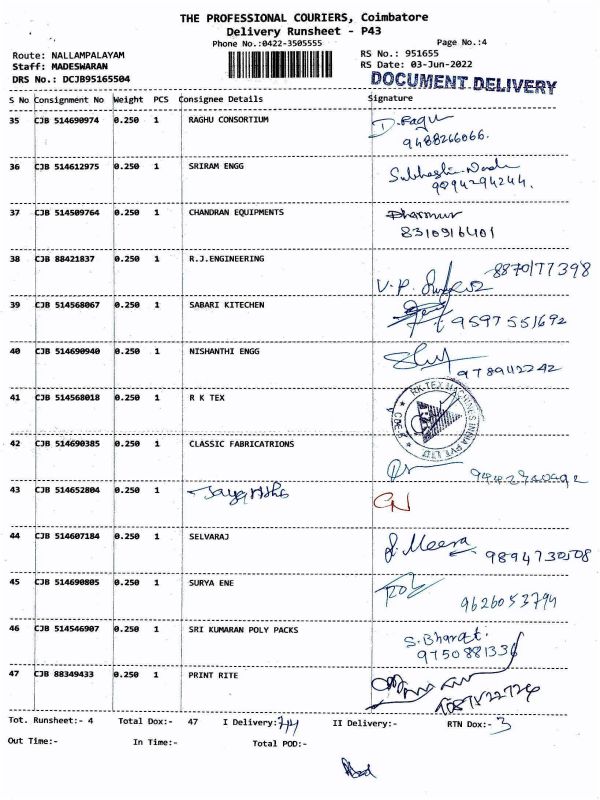 THE PROFESSIONAL COURIERS, Coimbatore
Delivery Runsheet - P43
Phone No.:0422-3505555
Page No.:4
Route: NALLAMPALAYAM
RS No.: 951655
Staff: MADESWARAN
RS Date: 03-Jun-2022
DRS No.: DCJB95165504
DOCUMENT DELIVERY
S No Consignment No Weight PCS Consignee Details Signature
35 CJB 514690974 0.250 1 RAGHU CONSORTIUM D.Ragu
9488266066.
36 CJB 514612975 0.250 1 SRIRAM ENGG
9894294244.
37 CJB 514509764 0.250 1 CHANDRAN EQUIPMENTS
8310916401
38 CJB 88421837 0.250 1 R.J.ENGINEERING 8870177398
V.P.
39 CJB 514568067 0.250 1 SABARI KITECHEN
9597551692
40 CJB 514690940 0.250 1 NISHANTHI ENGG
41 CJB 514568018 0.250 1 R K TEX
RK TEX MACHINES INDIA PVT LTD
42 CJB 514690385 0.250 1 CLASSIC FABRICATRIONS
43 CJB 514652804 0.250 1
44 CJB 514607184 0.250 1 SELVARAJ Meera
9894730508
45 CJB 514690805 0.250 1 SURYA ENE
9626053794
46 CJB 514546907 0.250 1 SRI KUMARAN POLY PACKS S.Bharat.
9750881336
47 CJB 88349433 0.250 1 PRINT RITE
Tot. Runsheet:- 4 Total Dox:- 47 I Delivery:- 44 II Delivery:- RTN Dox:- 3
Out Time:- In Time:- Total POD:-